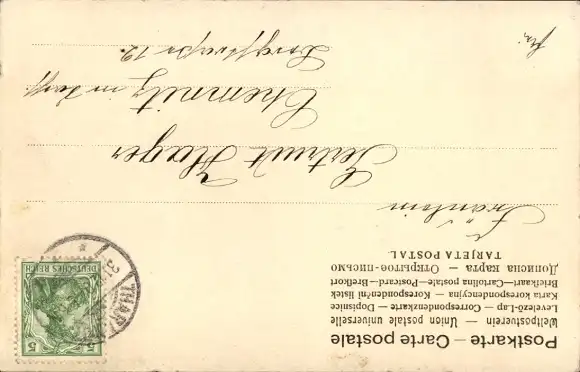 Postkarte – Carte postale
Weltpostverein – Union postale universelle
Levelező-Lap – Correspondenzkarte – Dopisnice
Karta korespondencyjna – Korespondenční lístek
Briefkaart–Cartolina postale–Postcard–Brefkort
Дописна карта – Открытое-письмо
TARJETA POSTAL
5 5
DEUTSCHES REICH
THAR
Fräulein
Gertrud Hager
Chemnitz in Sachs.
12.